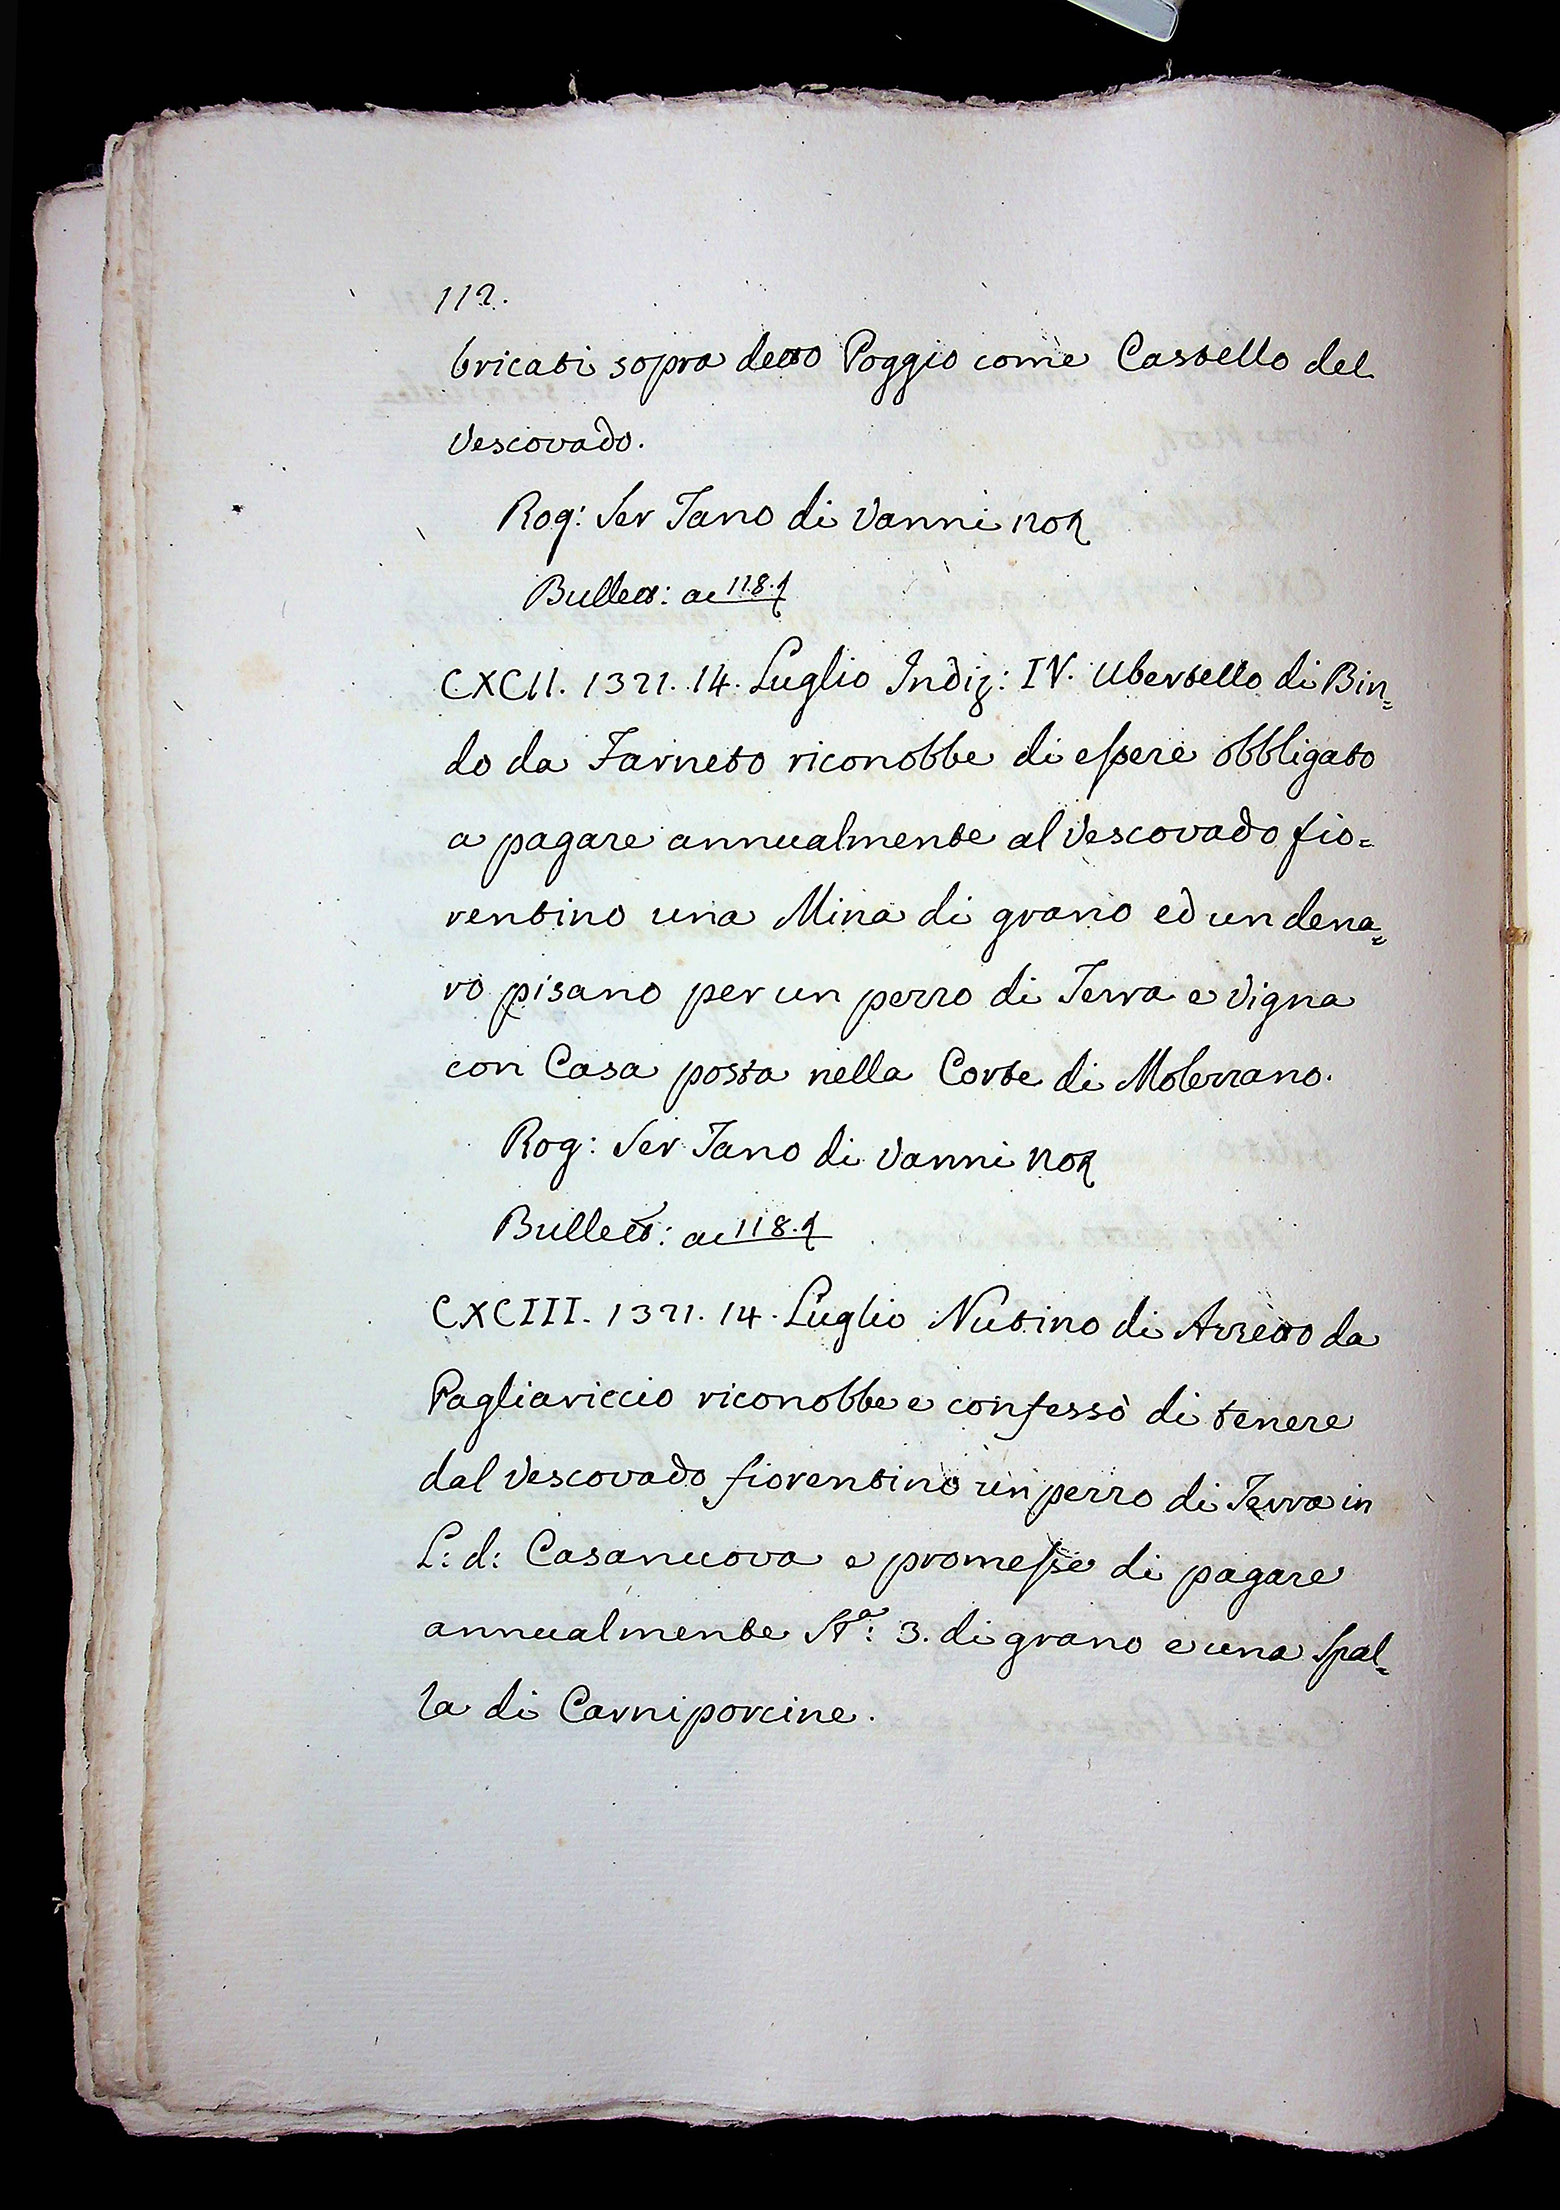 112.
bricati sopra detto Poggio come Castello del
Vescovado.
Rog: Ser Tano di Vanni Not
Bullett: ac 118.
CXCII. 1321. 14. Luglio Indiz: IV. Ubertello di Bin=
do da Farneto riconobbe di essere obbligato
a pagare annualmente al Vescovado fio=
rentino una Mina di grano ed un dena=
ro pisano per un pezzo di Terra e Vigna
con Casa posta nella Corte di Molezzano.
Rog: Ser Tano di Vanni Not
Bullett: ac 118.
CXCIII. 1321. 14. Luglio Nutino di Azzetto da
Pagliariccio riconobbe e confessò di tenere
dal Vescovado fiorentino un pezzo di Terra in
L: d: Casanuova e promesse di pagare
annualmente Sta: 3. di grano e una Spal=
la di Carni porcine.